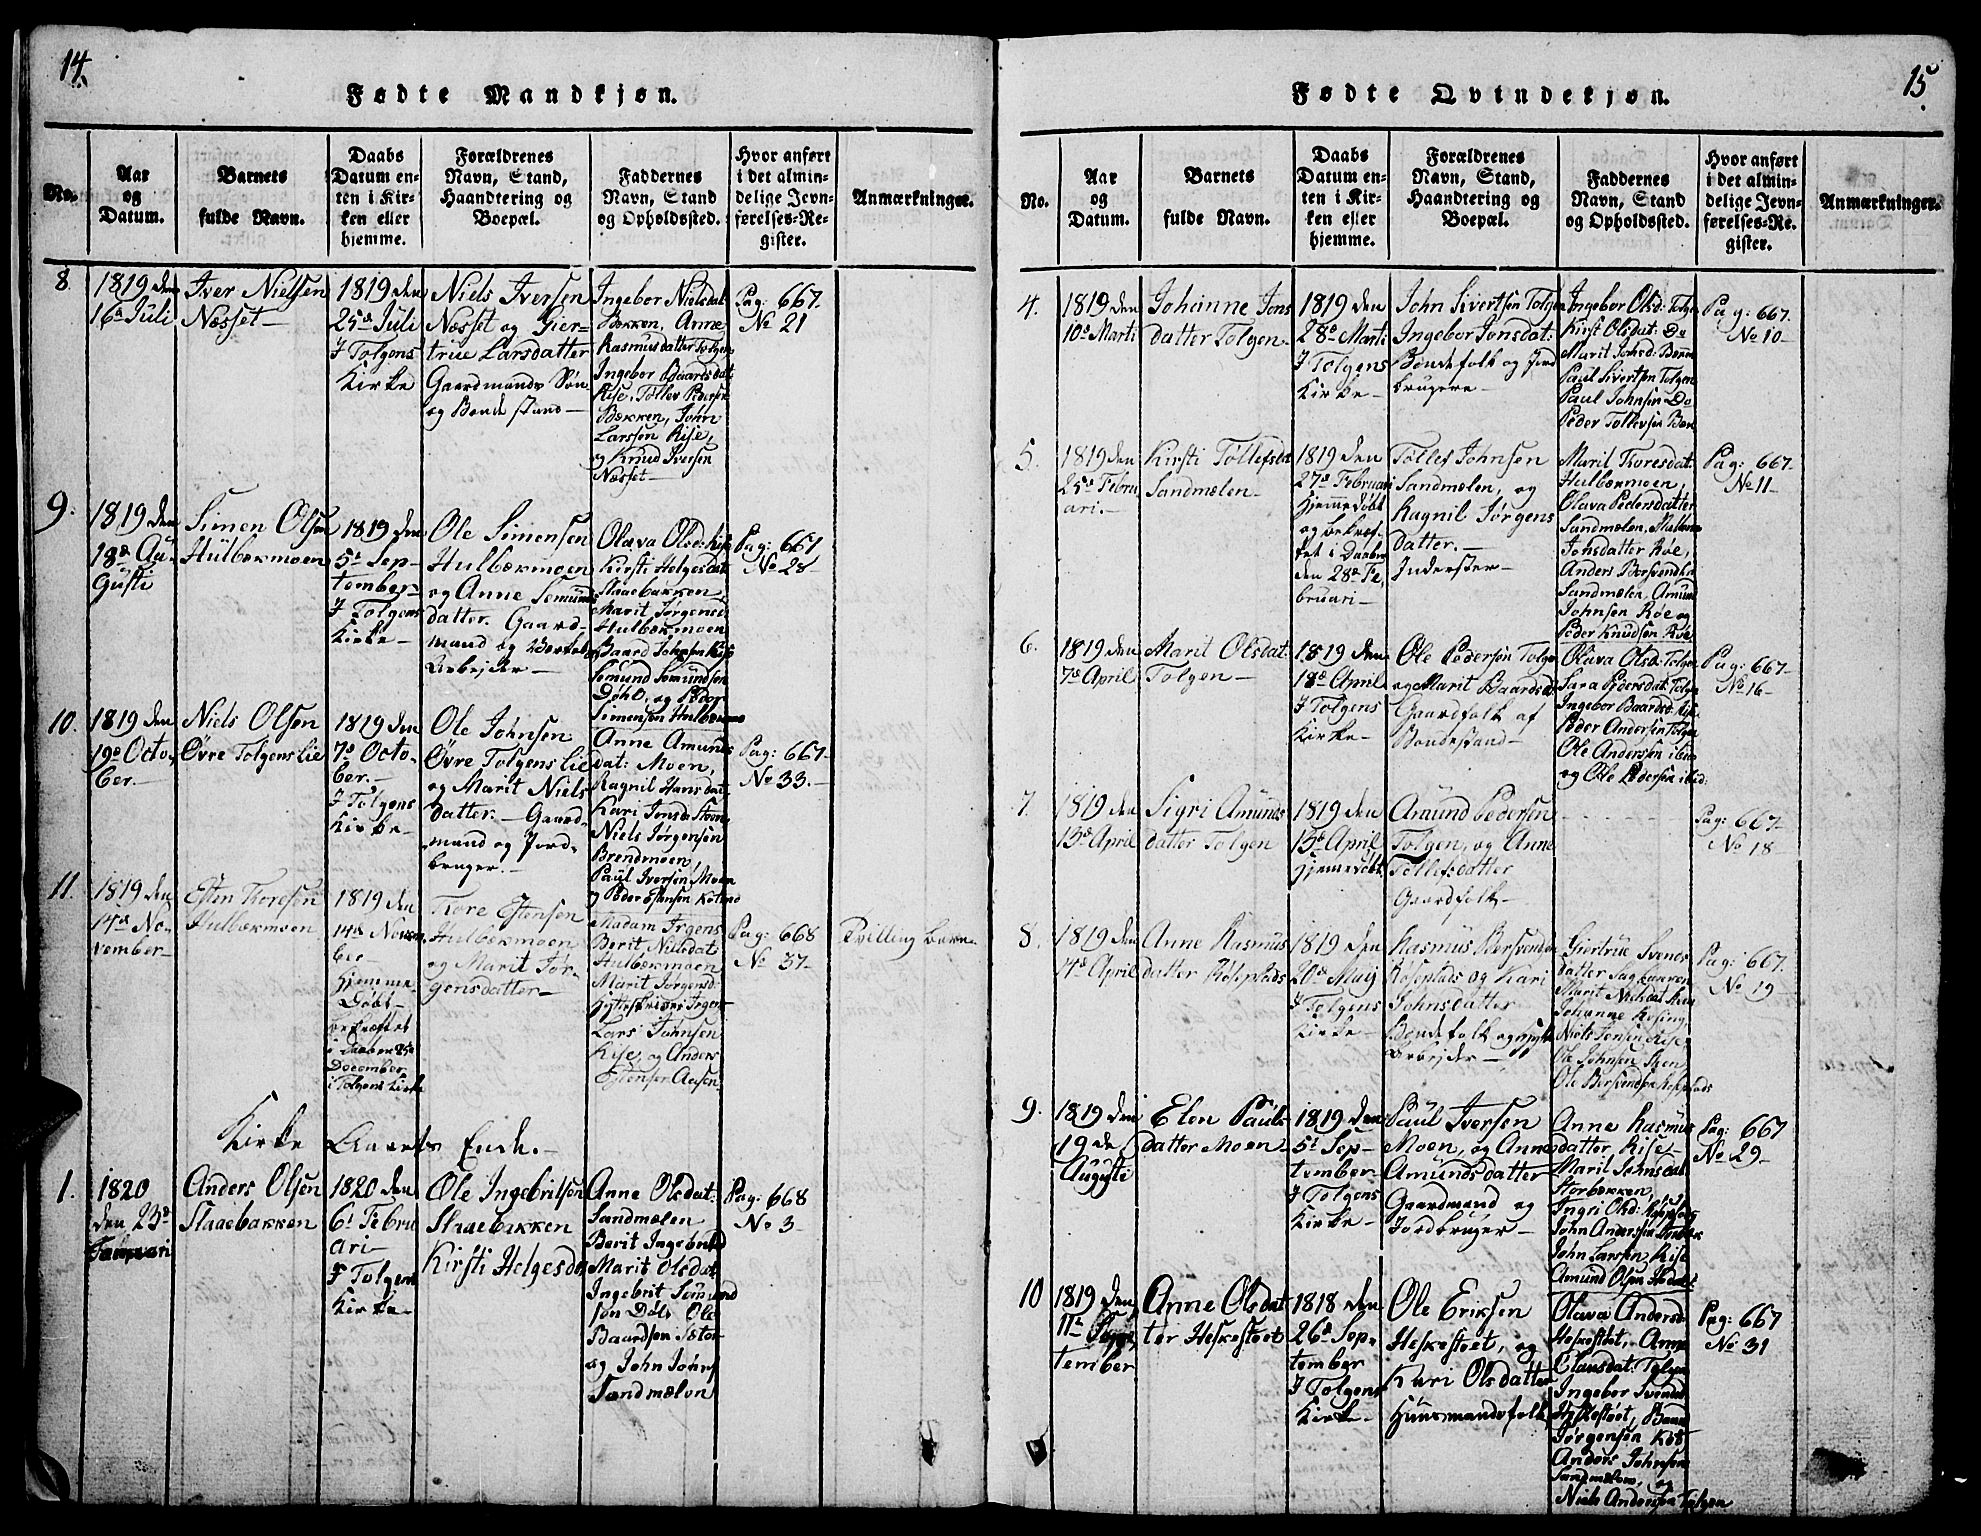 14.
Fødte Mandkjøn.
No.
Aar
og
Datum.
Barnets
fulde Navn.
Daabs
Datum en-
ten i Kir-
ken eller
hjemme.
Forældrenes
Navn, Stand,
Haandtering og
Boepæl.
Faddernes
Navn, Stand
og Opholdssted.
Hvor anført
i det almin-
delige Jevn-
førelses-Re-
gister.
Anmærkninger.
8.
1819 den
16d Juli
Iver Nielsen
Næsset
1819 den
25d Juli
I Tolgens
Kirke
Niels Iversen
Næsset og Gier-
true Larsdatter
Gaardmands Søn
og Bondestand
Ingebor Nielsdat
Bækken, Anne
Rasmusdatter Tolgen
Ingebor Baardsdat
Rise, Tollev Pedersen
Bækken, John
Larssen Rise,
og Knud Iversen
Næsset
Pag: 667.
No 21
9.
1819 den
18d Au-
gusti
Simen Olsen
Hulbækmoen
1819 den
5t Sep-
tember
I Tolgens
Kirke
Ole Simensen
Hulbækmoen
og Anne Semunds
datter. Gaard-
mand og Værks
Arbejder
Olava Olsd: Rise
Kirsti Helgesdat
Staaebakken
Marit Jørgensd:
Hulbækmoen
Baard Johnsen Rise
Semund Semundsen
og Peder
Simensen Hulbækmoe
Pag: 667
No 28
10.
1819 den
19d Octo-
ber.
Niels Olsen
Øvre Tolgens Lie
1819 den
7d Octo-
ber.
I Tolgens
Kirke
Ole Johnsen
Øvre Tolgens Lie
og Marit Niels
datter. Gaard-
mand og Jord-
bruger.
Anne Amunds
dat: Moen,
Ragnil Hansdat
Kari Jonsda
Niels Jørgensen
Brendmoen,
Paul Iversen Moen
og Peder Estensen
Pag: 667.
No 33.
11.
1819 den
14d No-
vember
Esten Toresen
Hulbækmoen
1819 den
14d Novem
ber
Hjemme
Døbt
bekræftet
i Daaben 25d
December
i Tolgens Kirke
Tore Estensen
Hulbækmoen
og Marit Jør-
gensdatter
Madam Irgens
Berit Nielsdat
Hulbækmoen
Marit Jørgensd:
Hytteskriver Irgens
Lars Johnsen
Rise, og Anders
Estensen Aasen
Pag: 668
No 37
Tvilling barn
Kirke Aarets Ende.
1.
1820
den 23d
Januari
Anders Olsen
Staaebakken
1820 den
6t Febru
ari
I Tolgens
Kirke
Ole Ingebritsen
Staaebakken
Kirsti Helgesda
Anne Olsdat:
Sandmælen
Berit Ingebritsd
Marit Olsdat
Ingebrit Semund
søn Døhl Ole
Baardsen Sæter
og John Johns
Sandmælen
Pag: 668
No 3
15.
Fødte Qvindekjøn.
No.
Aar
og
Datum.
Barnets
fulde Navn.
Daabs
Datum en-
ten i Kir-
ken eller
hjemme.
Forældrenes
Navn, Stand,
Haandtering og
Boepæl.
Faddernes
Navn, Stand
og Opholdssted.
Hvor anført
i det almin-
delige Jevn-
førelses-Re-
gister.
Anmærkninger.
4.
1819 den
10d Marti
Johanne Jons
datter Tolgen
1819 den
28d Marti
I Tolgens
Kirke
John Sivertsen Tolgen
Ingebor Jonsdat:
Bondefolk og Jord
brugere
Ingebor Olsd: Tolgen
Kirst Olsdat: Do
Marit Johsd:
Paul Sivertsen Tolgen
Paul Johnsen Do
Peder Tollevsen
Pag: 667.
No 10
5.
1819 den
25d Febru
ari.
Kirsti Tollefsda
Sandmælen
1819 den
27d Februari
Hjemmedøbt
og bekræf-
tet i Daaben
den 28d Fe
bruari
Tollef Johnsen
Sandmælen, og
Ragnil Jørgens
datter.
Inderster
Marit Thoresdat:
Hulbækmoen,
Olava Pedersdatter
Sandmælen,
Jonsdatter Røe,
Anders Bersvends
Sandmælen, Amund
Johnsen Røe og
Peder Knudsen
Pag: 667
No 11
6.
1819 den
7d April
Marit Olsdat:
Tolgen
1819 den
18d April
I Tolgens
Kirke
Ole Pedersen Tolge
og Marit Baardsd
Gaardfolk af
Bondestand
Olava Olsd: Tolgen
Sara Pedersdat: Tolgen
Ingebor Baardsd: Rise
Peder Andersen Tolgen
Ole Andersen ibid
og Ole Pedersen ibid:
Pag: 667
No 16
7.
1819 den
13d April
Sigri Amunds
datter Tolgen
1819 den
13d April
Hjemmedøbt
Amund Pedersen
Tolgen, og Anne
Tollefsdatter
Gaardfolk
Pag: 667
No 18
8.
1819 den
14d April
Anne Rasmus
datter Røseplads
1819 den
20d Maij
I Tolgens
Kirke
Rasmus Bersvendsen
Røseplads og Kari
Johnsdatter
Bondefolk og
Arbejder
Giertrue Svends
datter
Marit Nielsdat
Johanne Rosing,
Niels Jensen Rise
Ole Johnsen
Ole Bersvendsen Røseplads
Pag: 667.
No 19
9.
1819 den
19 de
Auguste
Elen Pauls-
datter Moen
1819 den
5t Sep-
tember
I Tolgens
Kirke
Paul Iversen
Moen, og Anne
Amundsdatter
Gaardmand og
Jordbruger
Anne Rasmus
datter, Rise
Marit Johnsdat
Storbækken,
Ingri Olsd:
John Andersen
John Larsen Rise
Amund Olsen
Pag: 667
No 29
10
1819 den
11te Sep
tember
Anne Olsdat
ter Heskestoet
1818 den
26d Sep-
tember
I Tolgens
Kirke
Ole Eriksen
Heskestoet, og
Kari Olsdatter
Huusmandsfolk
Olava Andersd
Heskestoet, Anne
Clausdat: Tolgen
Ingebor Svends
Heskestoet, Baard
Jørgensen
Anders Johnsen
Sandmælen, og
Niels Andersen Tolgen
Pag: 667
No 31